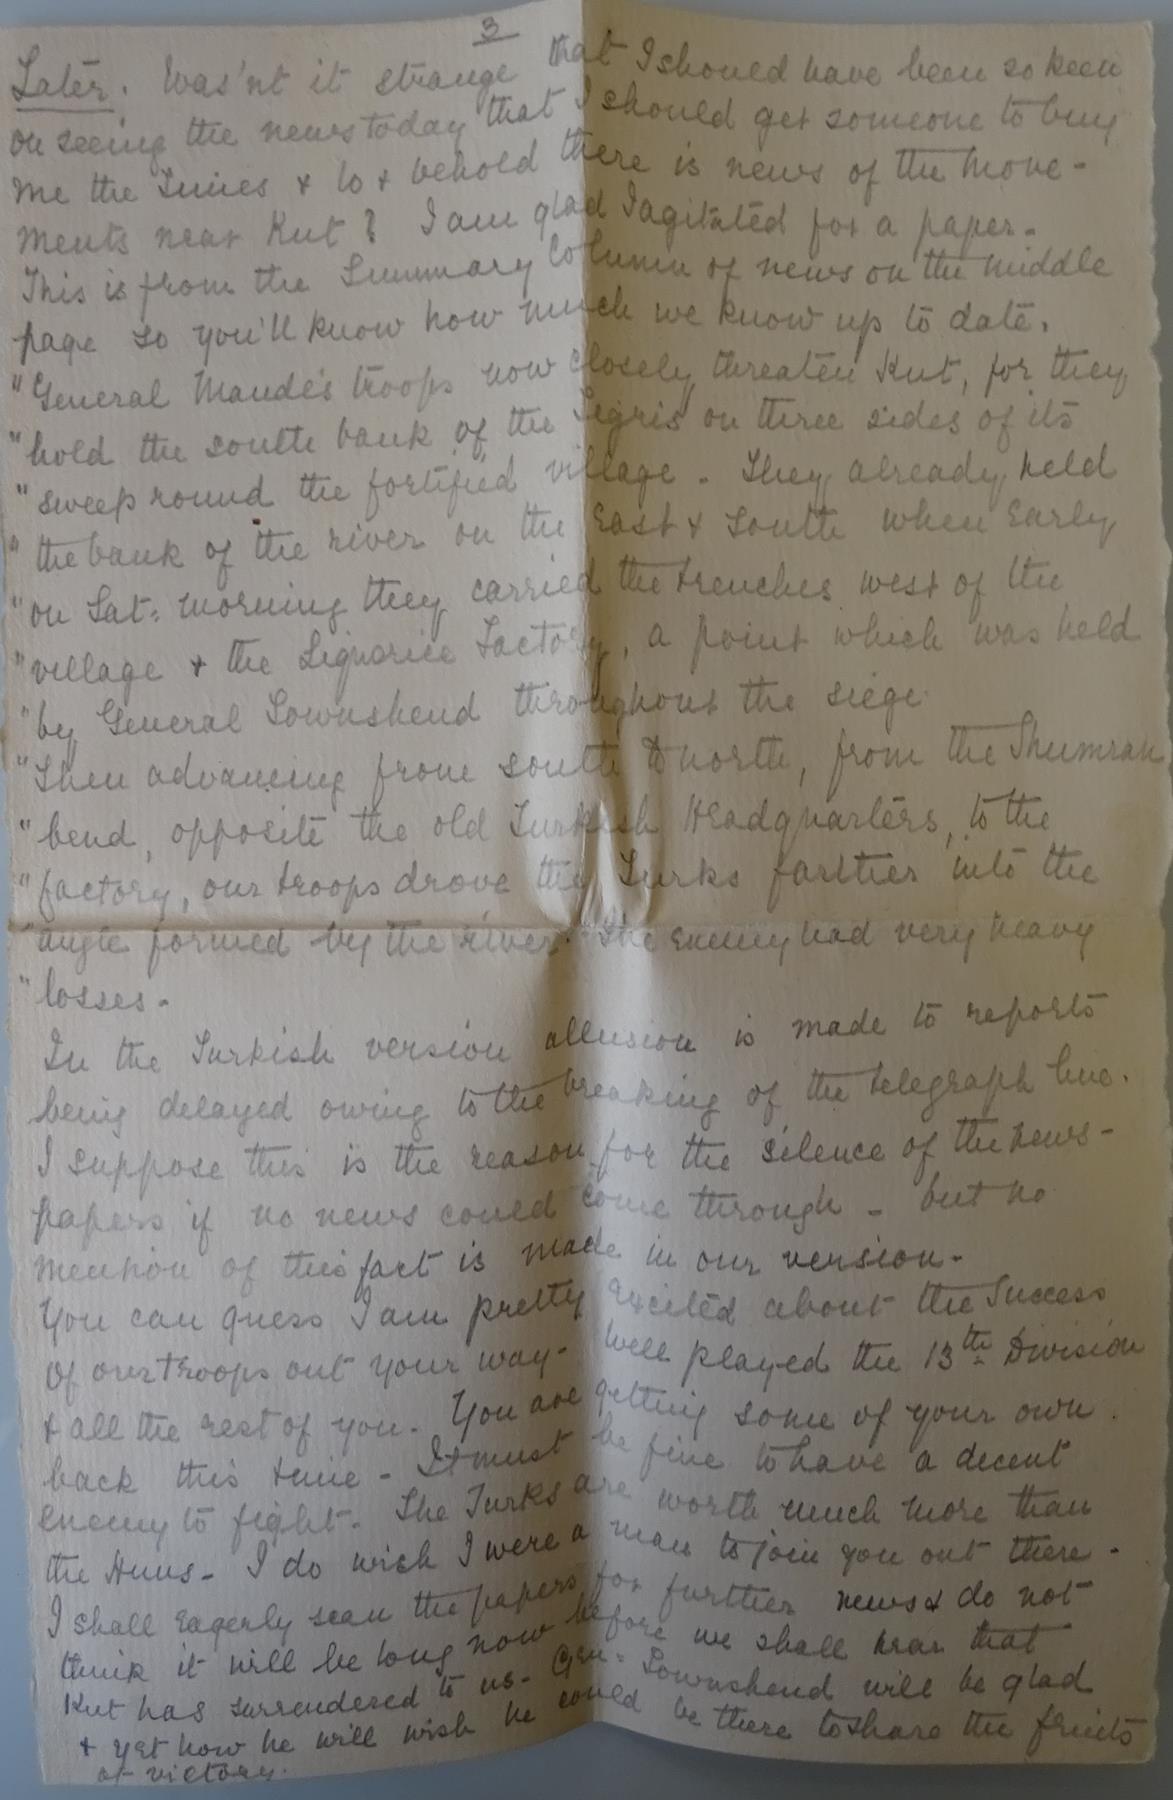 3
Later. Was'nt it strange that I should have been so keen
on seeing the news today that I should get someone to buy
me the Times & lo & behold there is news of the move-
ments near Kut? I am glad I agitated for a paper.
This is from the Summary Column of news on the middle
page so you'll know how much we know up to date.
"General Maude's troops now closely threaten Kut, for they
"hold the south bank of the Tigris on three sides of its
"sweep round the fortified village. They already held
"the bank of the river on the East & South when early
"on Sat: morning they carried the trenches west of the
"village & the Liquorice Factory, a point which was held
"by General Townshend throughout the siege.
"Then advancing from south to north, from the Shumran
"bend, opposite the old Turkish Headquarters, to the
"factory, our troops drove the Turks farther into the
"angle formed by the river. The enemy had very heavy
"losses.
In the Turkish version allusion is made to reports
being delayed owing to the breaking of the telegraph line.
I suppose this is the reason for the silence of the news-
papers if no news could come through - but no
mention of this fact is made in our version.
You can guess I am pretty excited about the Success
of our troops out your way. Well played the 13th Division
& all the rest of you. You are getting some of your own
back this time - It must be fine to have a decent
enemy to fight. The Turks are worth much more than
the Huns. I do wish I were a man to join you out there.
I shall eagerly scan the papers for further news & do not
think it will be long now before we shall hear that
Kut has surrendered to us. Gen: Townshend will be glad
& yet how he will wish he could be there to share the fruits
of victory.